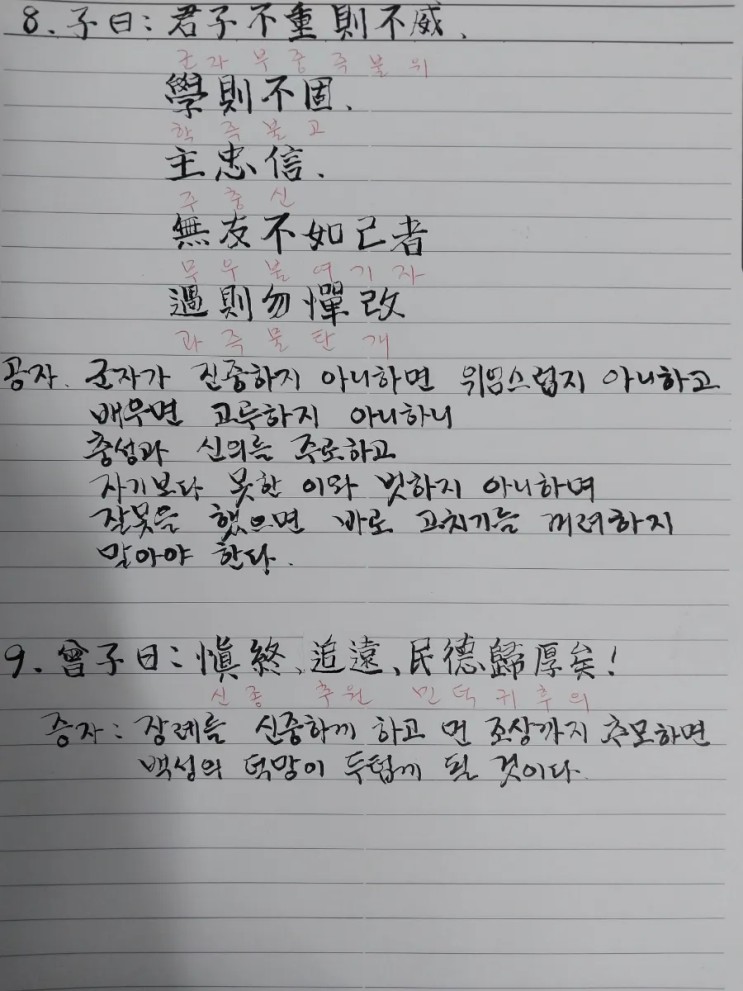 8. 子曰: 君子不重則不威.
군자 부중즉불위
學則不固.
학즉불고
主忠信.
주충신
無友不如己者
무우불여기자
過則勿憚改
과즉물탄개
공자. 군자가 진중하지 아니하면 위엄스럽지 아니하고
배우면 고루하지 아니하니
충성과 신의를 주로하고
자기보다 못한 이와 벗하지 아니하며
잘못을 했으면 바로 고치기를 꺼려하지
말아야 한다.
9. 曾子曰: 愼終、追遠、民德歸厚矣!
신종 추원 민덕귀후의
증자: 장례를 신중하게 하고 먼 조상까지 추모하면
백성의 덕망이 두텁게 될 것이다.